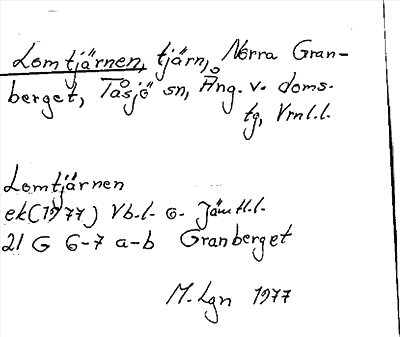 Lomtjärnen, tjärn, Norra Gran-
berget, Tåsjö sn, Ång. v. doms.
tg, Vrnl.l.
Lomtjärnen
ek (1977) Vb.l. o. Jämtl.l.
21 G 6-7 a-b Granberget
M. Lgn 1977